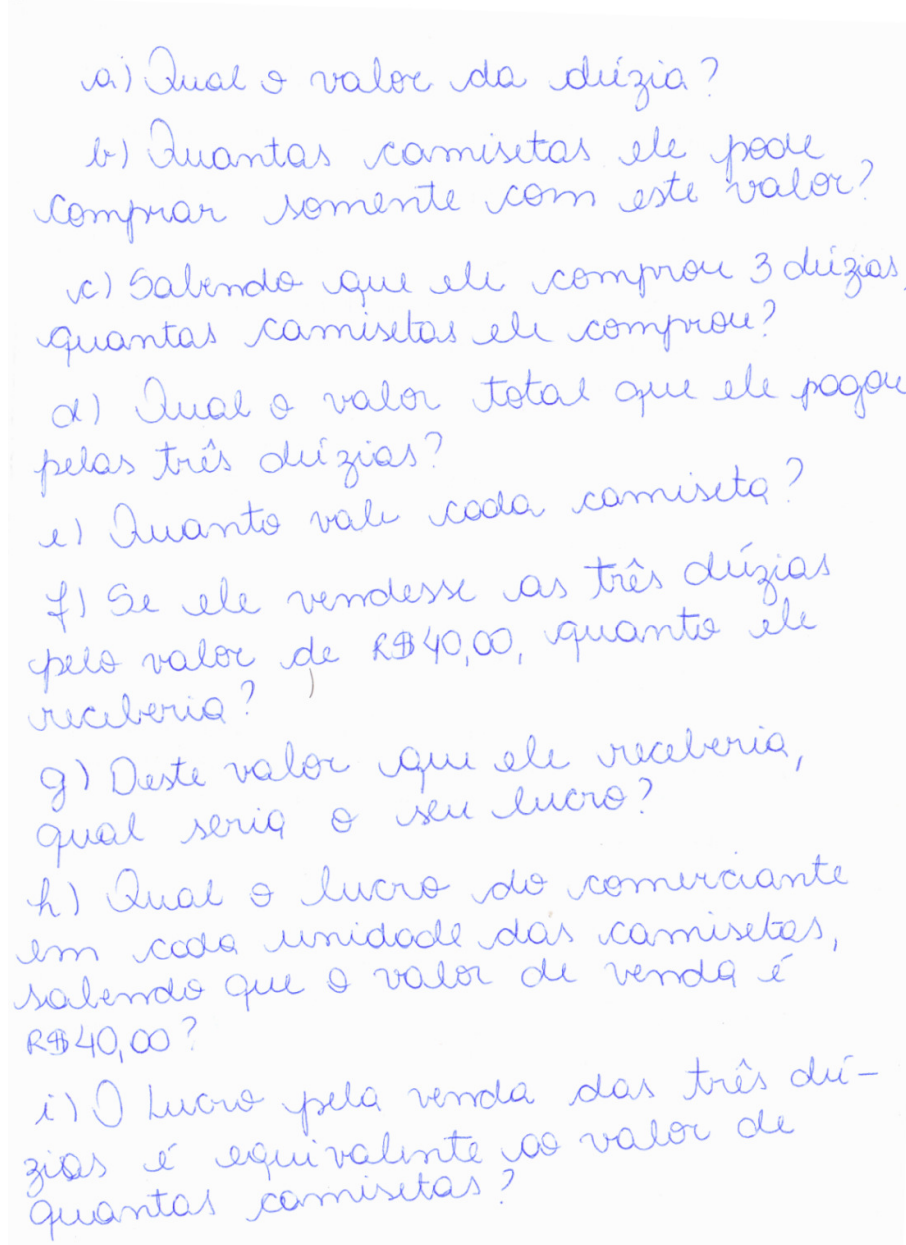 a) Qual o valor da dúzia?
b) Quantas camisetas ele pode
comprar somente com este valor?
c) Sabendo que ele comprou 3 dúzias,
quantas camisetas ele comprou?
d) Qual o valor total que ele pagou
pelas três dúzias?
e) Quanto vale cada camiseta?
f) Se ele vendesse as três dúzias
pelo valor de R$40,00, quanto ele
receberia?
g) Deste valor que ele receberia,
qual seria o seu lucro?
h) Qual o lucro do comerciante
em cada unidade das camisetas,
sabendo que o valor de venda é
R$40,00?
i) O Lucro pela venda das três dú-
zias é equivalente ao valor de
quantas camisetas?